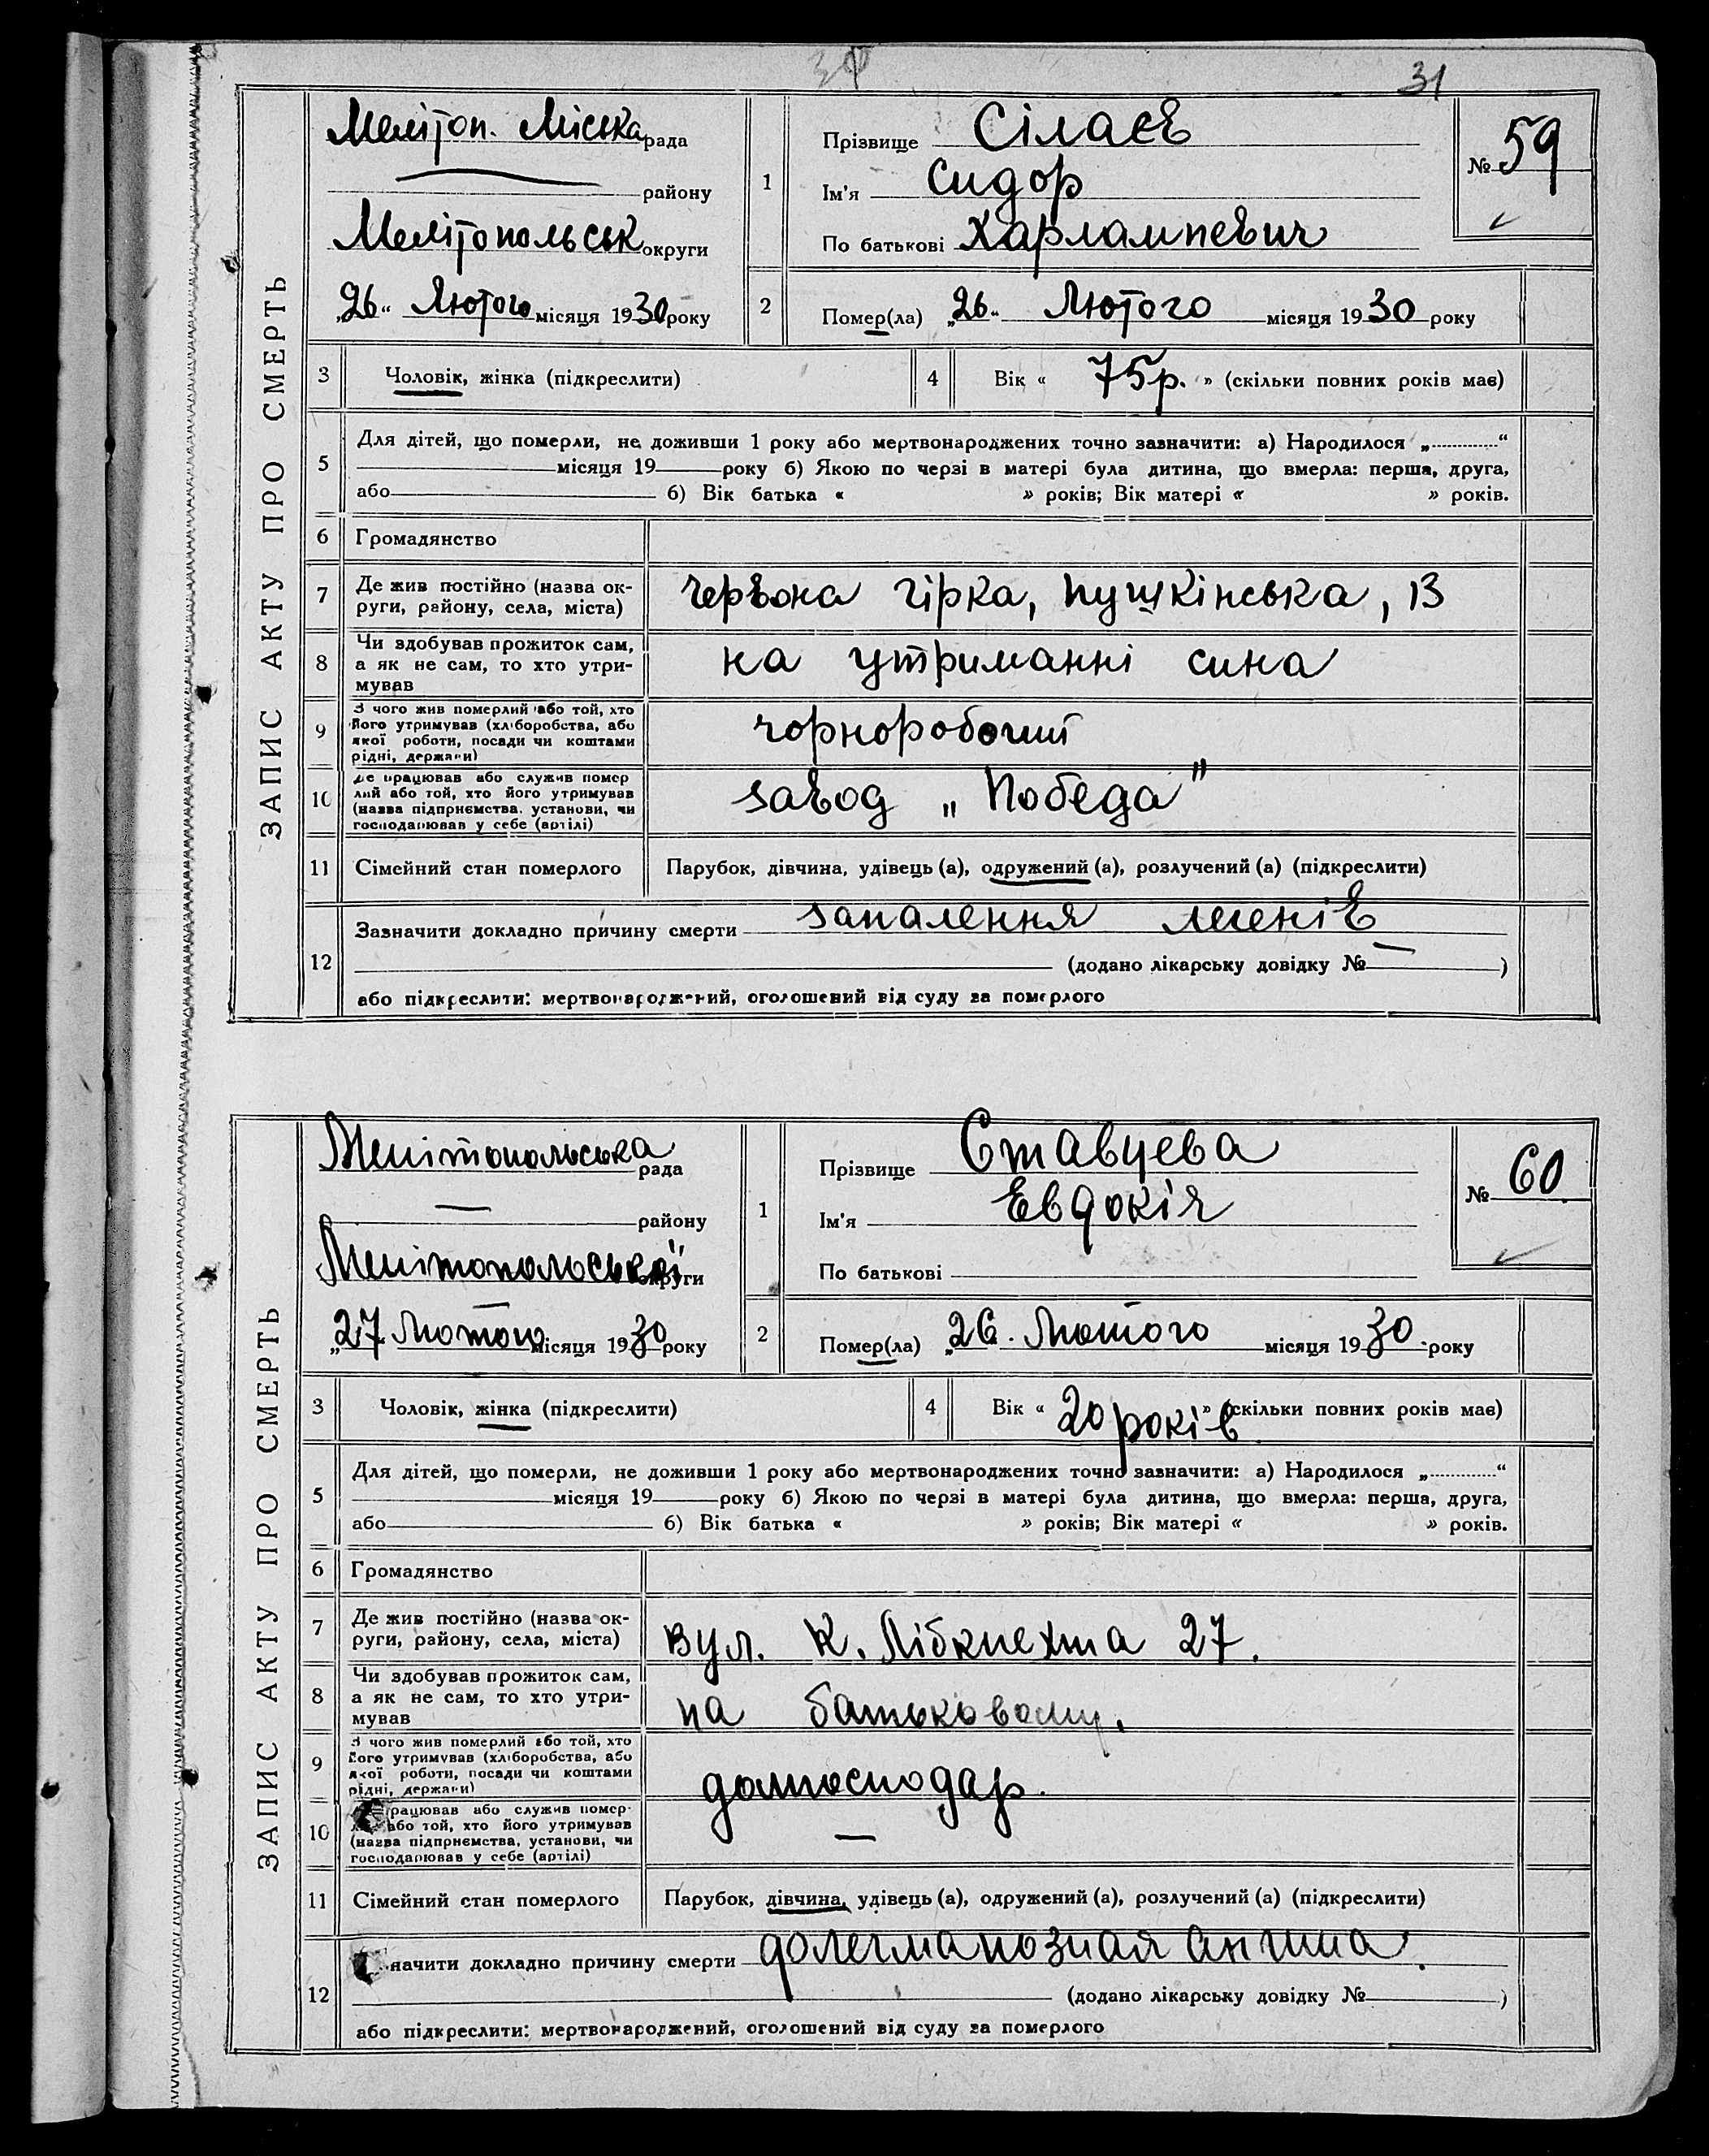 31
ЗАПИС АКТУ ПРО СМЕРТЬ
Меліроп. Міська рада
району
Мелітопольськ округи
„26“ Лютого місяця 1930 року
1
Прізвище Сілаєв
Ім'я Сидор
По батькові Харлампиевич
№ 59
2
Помер(ла) „26“ Лютого місяця 1930 року
3 Чоловік, жінка (підкреслити)
4 Вік « 75 р. » (скільки повних років має)
5
Для дітей, що померли, не доживши 1 року або мертвонароджених точно зазначити: а) Народилося „ “
місяця 19 року б) Якою по черзі в матері була дитина, що вмерла: перша, друга,
або б) Вік батька « » років; Вік матері « » років.
6 Громадянство
7
Де жив постійно (назва ок-
руги, району, села, міста)
Червона гірка, Пушкінська, 13
8
Чи здобував прожиток сам,
а як не сам, то хто утри-
мував
на утриманні сина
9
З чого жив померлий або той, хто
його утримував (хліборобства, або
якої роботи, посади чи коштами
рідні, держави)
чорноробочий
10
Де працював або служив помер
лий або той, хто його утримував
(назва підприємства, установи, чи
господарював у себе (артілі)
завод „Победа”
11 Сімейний стан померлого
Парубок, дівчина, удівець (а), одружений (а), розлучений (а) (підкреслити)
12
Зазначити докладно причину смерти запалення легенів
(додано лікарську довідку № )
або підкреслити: мертвонароджений, оголошений від суду за померлого
ЗАПИС АКТУ ПРО СМЕРТЬ
Мелітопольська рада
— району
Мелітопольської округи
„27 Лютого місяця 1930 року
1
Прізвище Ставцева
Ім'я Евдокія
По батькові
№ 60
2
Помер(ла) „26. Лютого місяця 1930 року
3 Чоловік, жінка (підкреслити)
4 Вік « 20 років » (скільки повних років має)
5
Для дітей, що померли, не доживши 1 року або мертвонароджених точно зазначити: а) Народилося „ “
місяця 19 року б) Якою по черзі в матері була дитина, що вмерла: перша, друга,
або б) Вік батька « » років; Вік матері « » років.
6 Громадянство
7
Де жив постійно (назва ок-
руги, району, села, міста)
вул. К. Лібкнехта 27.
8
Чи здобував прожиток сам,
а як не сам, то хто утри-
мував
на батьковому.
9
З чого жив померлий або той, хто
його утримував (хліборобства, або
якої роботи, посади чи коштами
рідні, держави)
домосподар.
10
рацював або служив помер-
або той, хто його утримував
(назва підприємства, установи, чи
господарював у себе (артілі)
—
11 Сімейний стан померлого
Парубок, дівчина, удівець (а), одружений (а), розлучений (а) (підкреслити)
12
начити докладно причину смерти ангина.
(додано лікарську довідку № )
або підкреслити: мертвонароджений, оголошений від суду за померлого